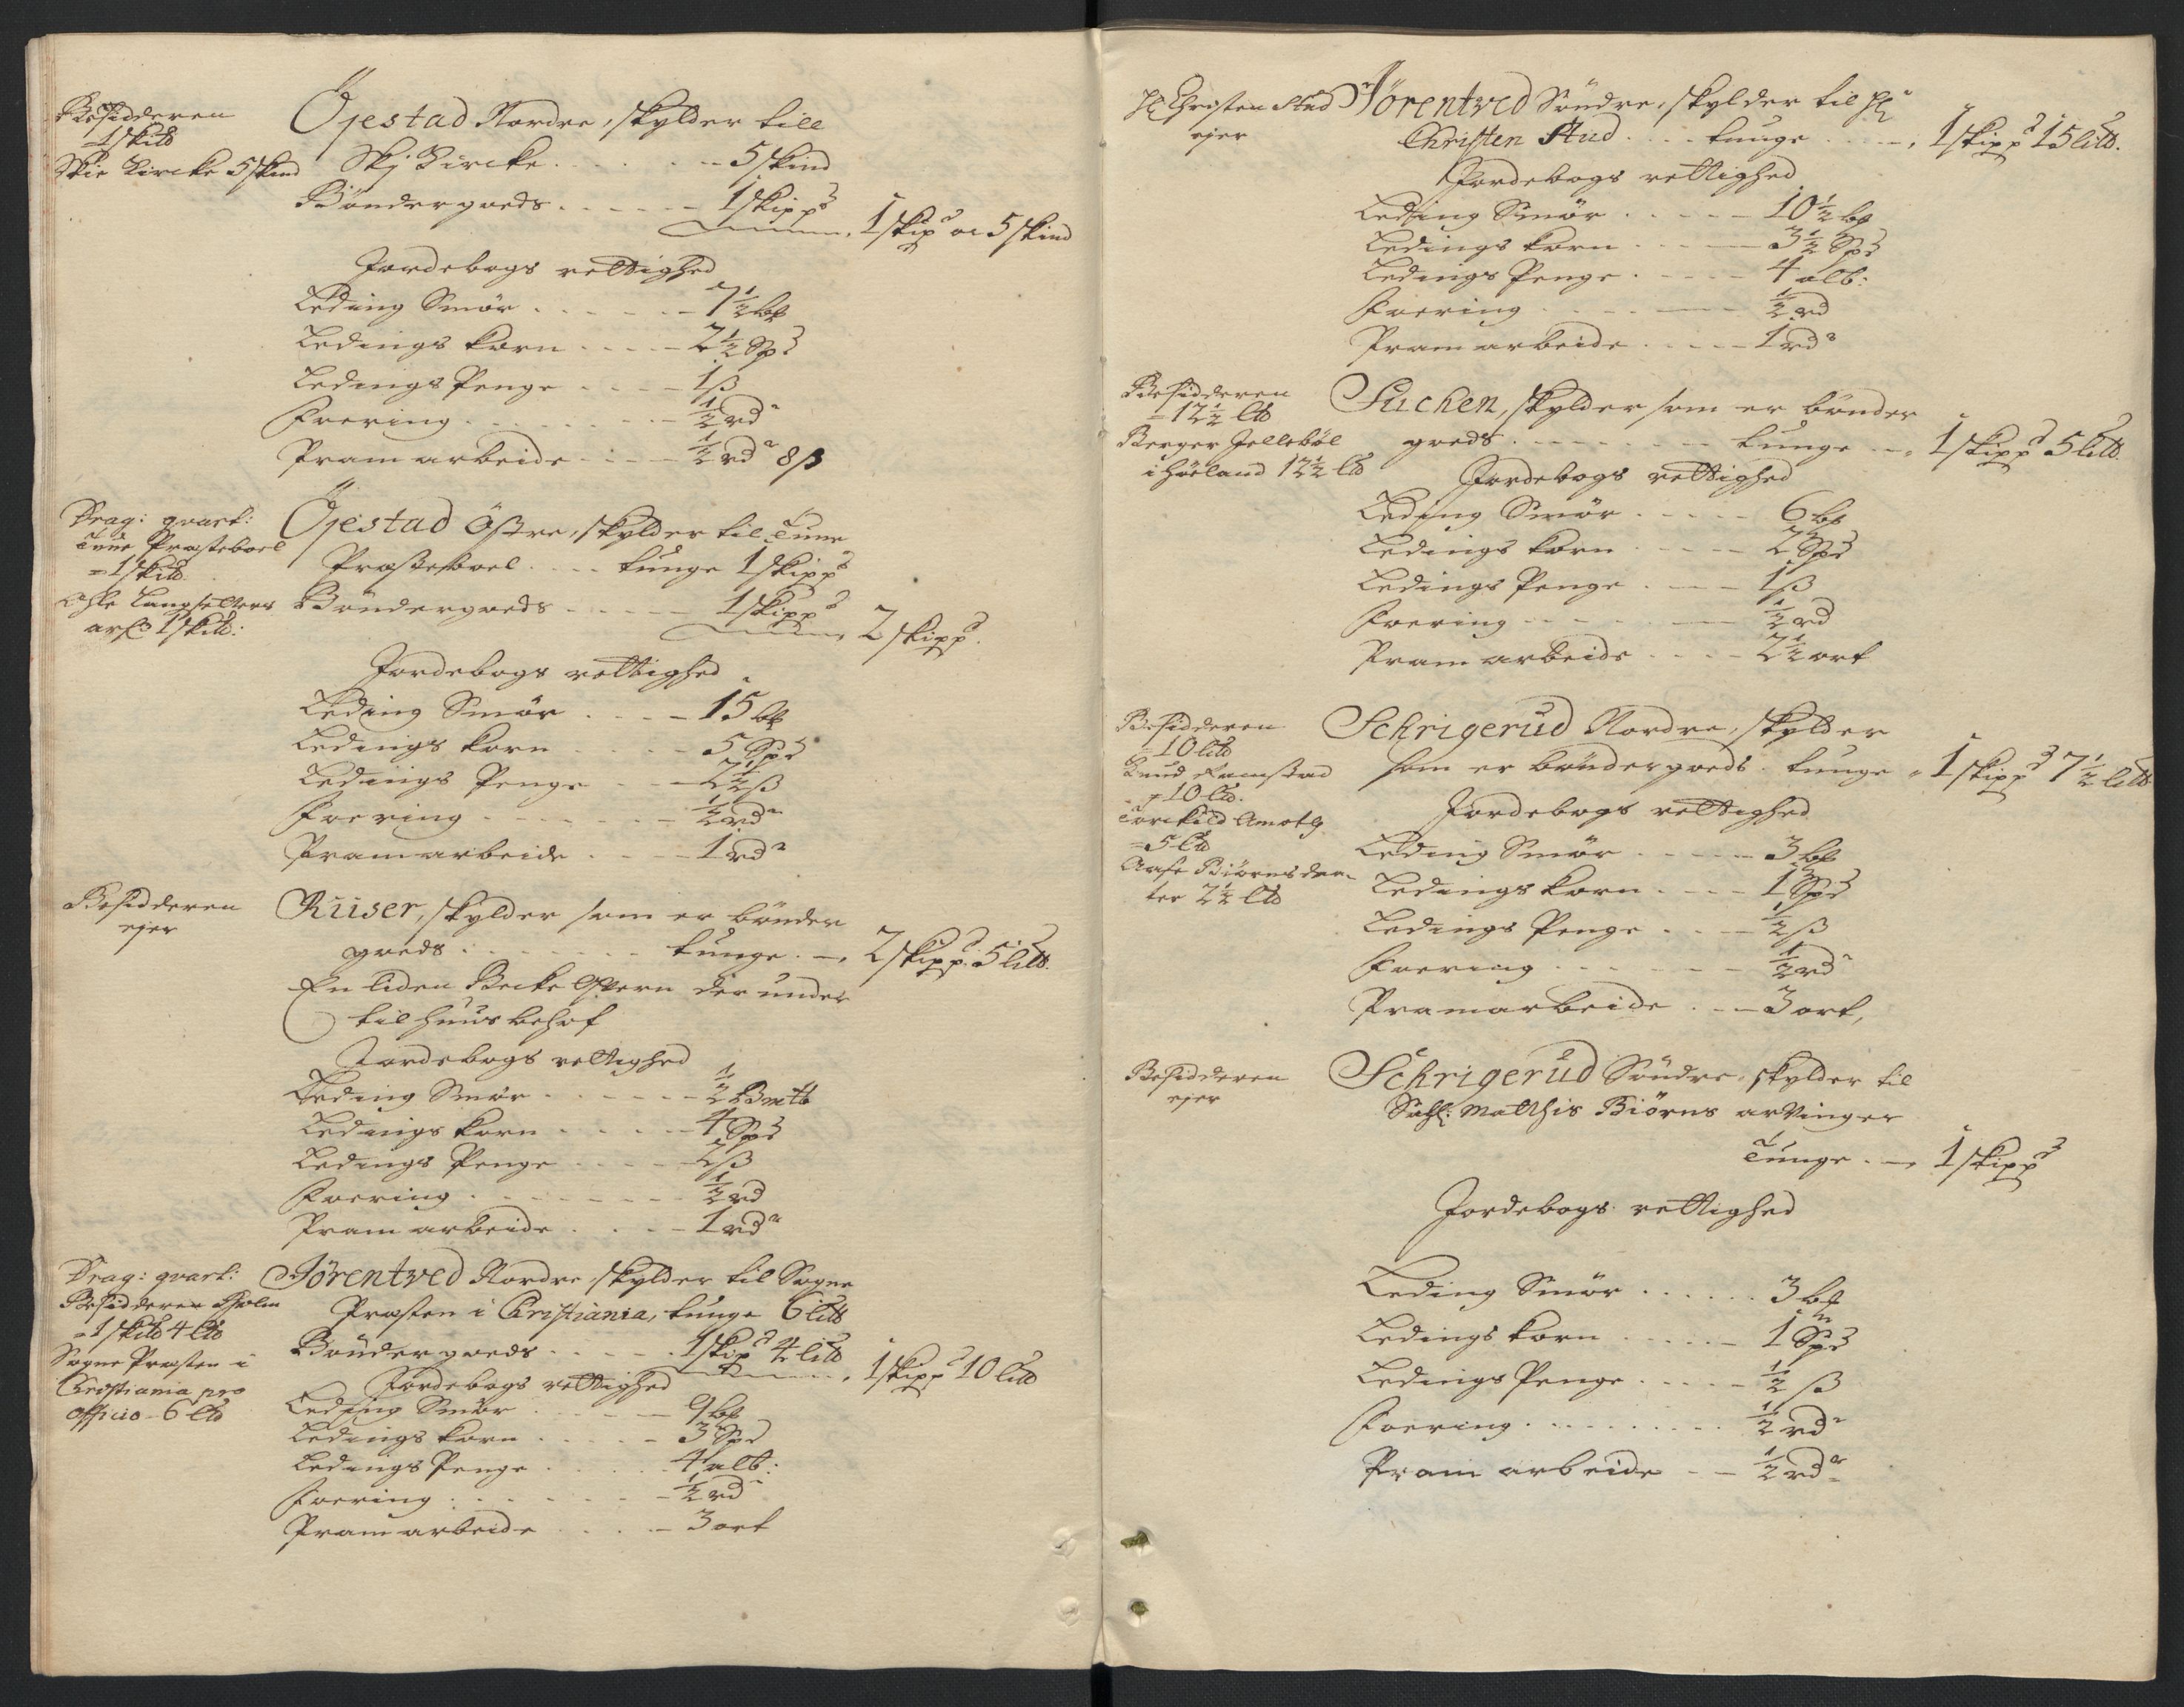 Besidderen
1 skild
Skie Kircke 5 skind
Öjestad Nordre, skylder till
Skj Kircke . . . . . . 5 skind
Böndergoeds . . . . . . 1 skippd
1 skipd oc 5 skind
Jordebogs rettighed
Leding Smör . . . . . . 7½ bℓ
Ledings korn . . . . 2½ Spd
Ledings Penge . . . . 1 ß
Foering . . . . . . . ½ rd
Pramarbeide . . . . ½ rdr 8 ß
Drag: qvart:
Tune Præsteboel
= 1 skild.
Langsetters
arf: 1 skild:
Öjestad Östre, skylder til Tune
Præsteboel . . . . tunge 1 skippd
Böndergoeds . . . . . 1 skippd
2 skippd.
Jordebogs rettighed
Leding Smör . . . . 15 bℓ
Ledings korn . . . . 5 Spd
Ledings Penge . . . 2½ ß
Foering . . . . . . ½ rdr
Pramarbeide . . . . 1 rdr
Besidderen
ejer
Kruser, skylder som er bönder
goeds . . . . . . . tunge . . 2 skippd. 5 lild.
En liden Becke Qvern der under
til huus behof
Jordebogs rettighed
Leding Smör . . . . . . ½ Bmℓb
Ledings korn . . . . . 4 Spd
Ledings Penge . . . . 2 ß
Foering . . . . . . . . ½ rd
Pram arbeide . . . . 1 rdr
Drag: qvart:
Besidderen Holm
= 1 skild 4 ℓd
Sogne Præsten i
Christiania pro
officio - 6 ℓd
Jörentved Nordre skylder til Sogne
Præsten i Christiania, tunge 6 lild
Böndergoeds . . . . . 1 skipd 4 lild
1 skippd 10 lild
Jordebogs rettighed
Leding Smör . . . . . 9 bℓ
Ledings korn . . . . . 3 Spd
Ledings Penge . . . . . 4 alb:
Foering . . . . . . . ½ rd
Pramarbeide . . . . . 3 ort
Hr Christen Stud
ejer
Jörentved Söndre, skylder til Hr
Christen Stud . . . tunge . . . . 1 skippd 15 lild.
Jordebogs rettighed
Leding Smör . . . . . 10½ bℓ
Ledings korn . . . . . 3½ Spd
Ledings Penge . . . . . 4 alb:
Foering . . . . . . . ½ rd
Pramarbeide . . . . . 1 rdr
Besidderen
= 12½ ℓd
Berger Jelleböl
i Höland 12½ ℓd
Sucken, skylder som er bönder
goeds . . . . . . . . tunge . . 1 skippd 5 lild.
Jordebogs rettighed
Leding Smör . . . . . 6 bℓ
Ledings korn . . . . . 2 Spd
Ledings Penge . . . . 1 ß
Foering . . . . . . . ½ rd
Pramarbeide . . . . 2½ ort
Besidderen
= 10 lild
Knud Ramstad
= 10 ℓd.
Torckild Amots
= 5 ℓd
Aase Biörnsdaa-
ter 2½ ℓd
Schrigerud Nordre, skylder
som er böndergoeds. tunge . 1 skippd 7½ lild
Jordebogs rettighed
Leding Smör . . . . . 3 bℓ
Ledings korn . . . . 1 Spd
Ledings Penge . . . . ½ ß
Foering . . . . . . . ½ rdr
Pramarbeide . . . 3 ort,
Besidderen
ejer
Schrigerud Söndre, skylder til
Sahl: Matthis Biörns arvinger
Tunge . . 1 skippd
Jordebogs rettighed
Leding Smör . . . . . . 3 bℓ
Ledings korn . . . . . 1 Spd
Ledings Penge . . . . . ½ ß
Foering . . . . . . . . . ½ rdr
Pram arbeide . . ½ rdr